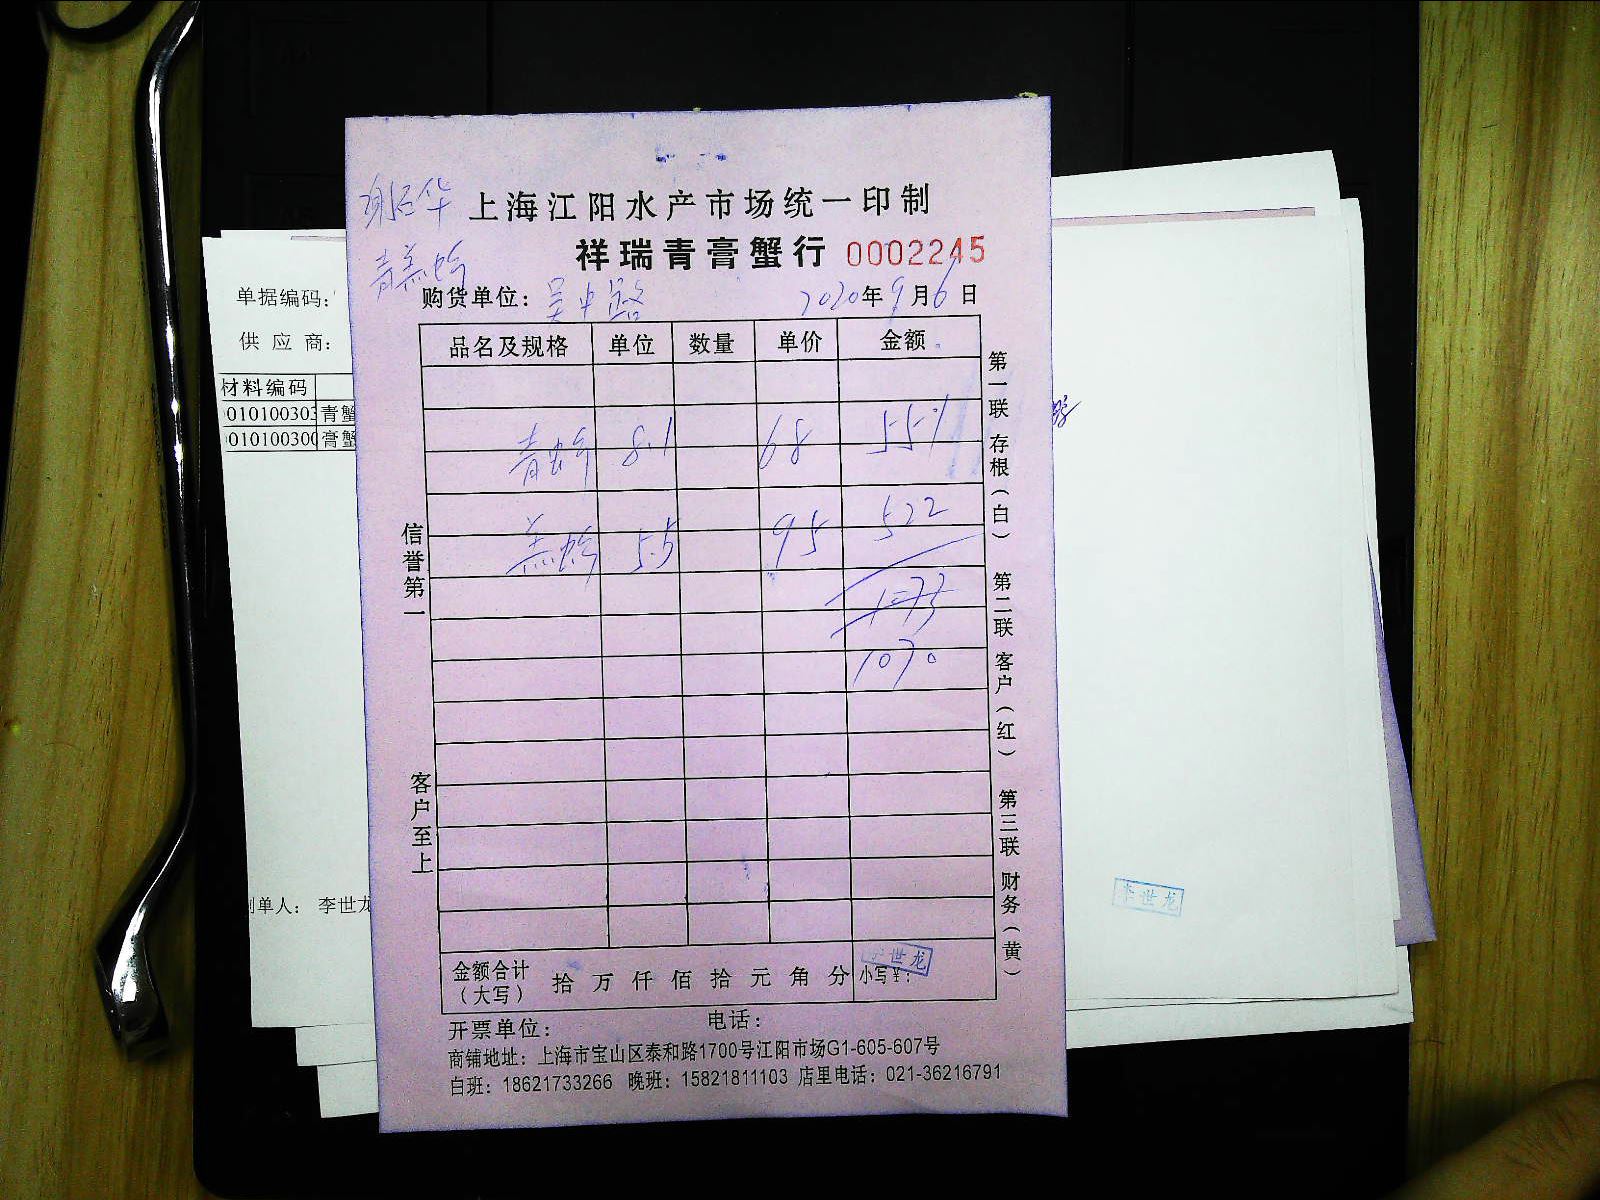 上海江阳水产市场统一印制
祥瑞青膏蟹行 0002245
购货单位：吴中路 2020年9月6日
品名及规格 单位 数量 单价 金额
青 8.1 68 551
羔 5.5 95 522
1073
1070
信誉第一
客户至上
第一联 存根（白） 第二联 客户（红） 第三联 财务（黄）
金额合计（大写） 拾 万 仟 佰 拾 元 角 分 小写¥：
李世龙
开票单位： 电话：
商铺地址：上海市宝山区泰和路1700号江阳市场G1-605-607号
白班：18621733266 晚班：15821811103 店里电话：021-36216791
单据编码：
供 应 商：
材料编码
010100303 青蟹
010100300 膏蟹
制单人： 李世龙
李世龙